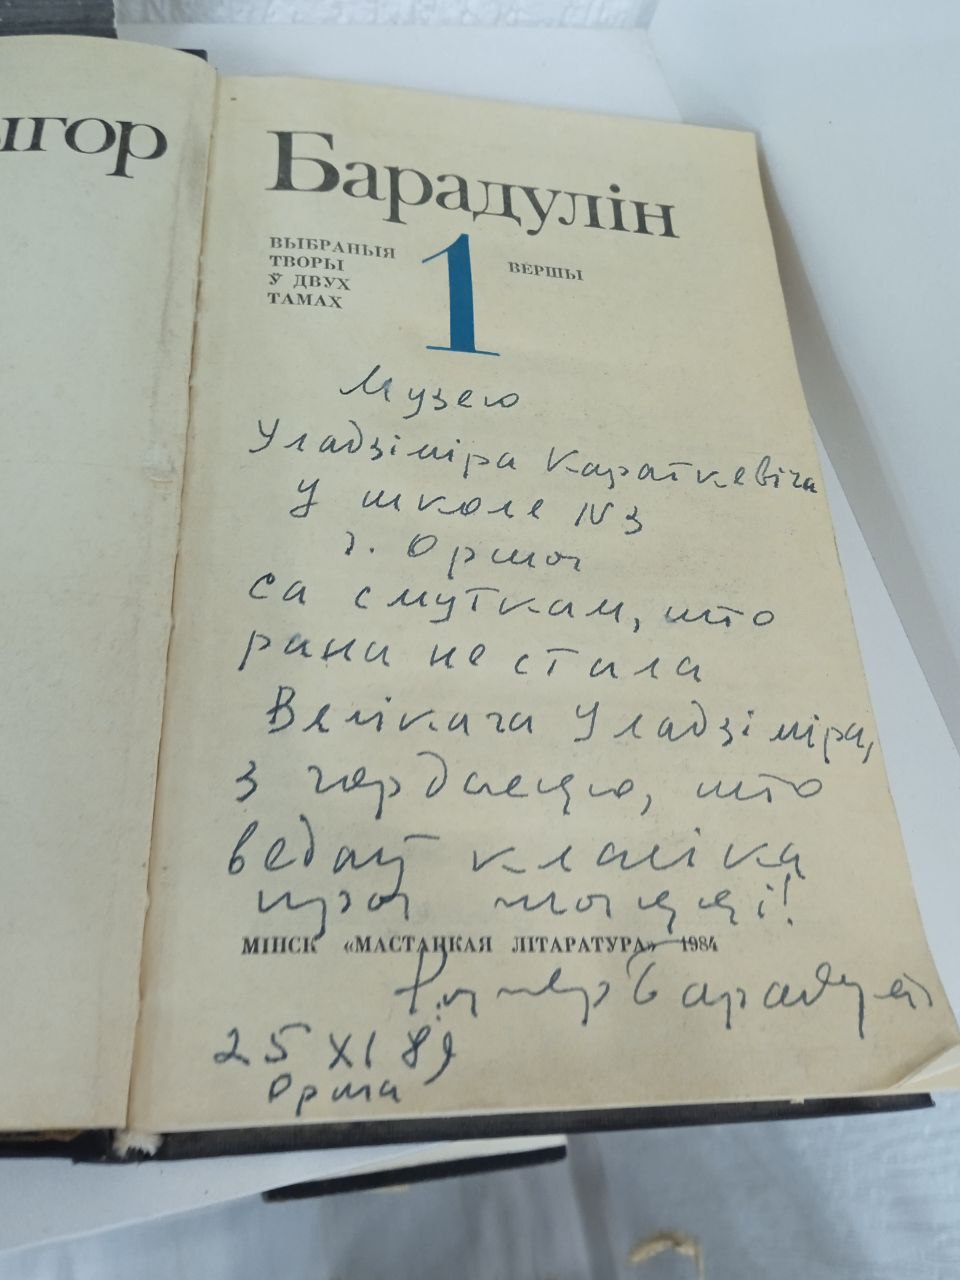 ыгор
Барадулін
ВЫБРАНЫЯ
ТВОРЫ
Ў ДВУХ
ТАМАХ
1
ВЕРШЫ
Музею
Уладзіміра Караткевіча
у школе №3
г. Оршы
са смуткам, што
рана не стала
Вялікага Уладзіміра,
з гордасцю, што
ведаў класіка
пры жыцці!
МІНСК «МАСТАЦКАЯ ЛІТАРАТУРА» 1984
Рыгор Барадулін
25 XI 89
Орша